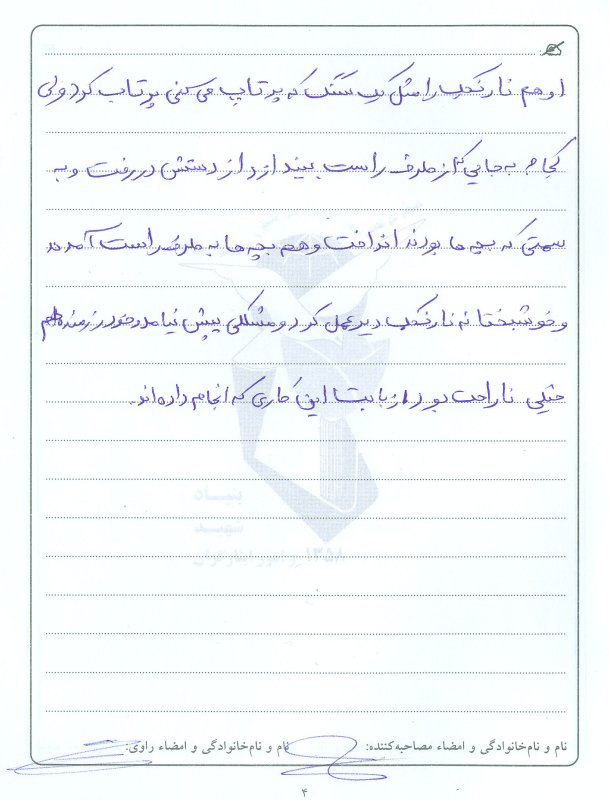 او هم نارنجک را مثل یک سنگ که پرتاب می کنی پرتاب کرد ولی
به جایی که از طرف راست بیندازد از دستش در رفت و به
سمتی که بچه ها بودند انداخت و هم بچه ها به طرف راست آمدند
و خوشبختانه نارنجک دیر عمل کرد و مشکلی پیش نیامد و خود رزمنده هم
خیلی ناراحت بود از بابت این کاری که انجام داده اند.
بنیاد
شهید
۱۳۵۸ و امور ایثارگران
نام و نام‌خانوادگی و امضاء مصاحبه‌کننده: نام و نام‌خانوادگی و امضاء راوی:
۴